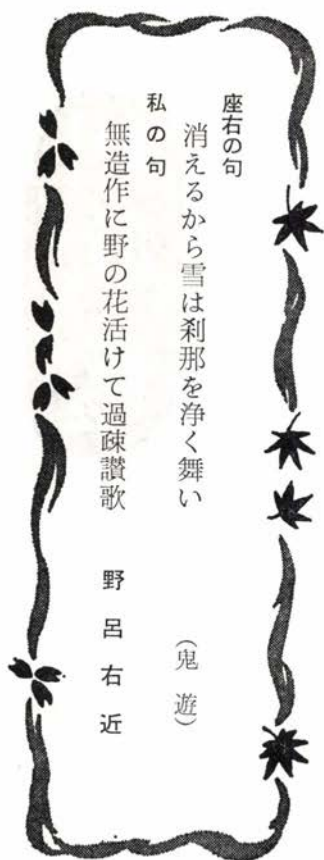 座右の句
消えるから雪は刹那を浄く舞い
(鬼遊)
私の句
無造作に野の花活けて過疎讃歌
野呂右近